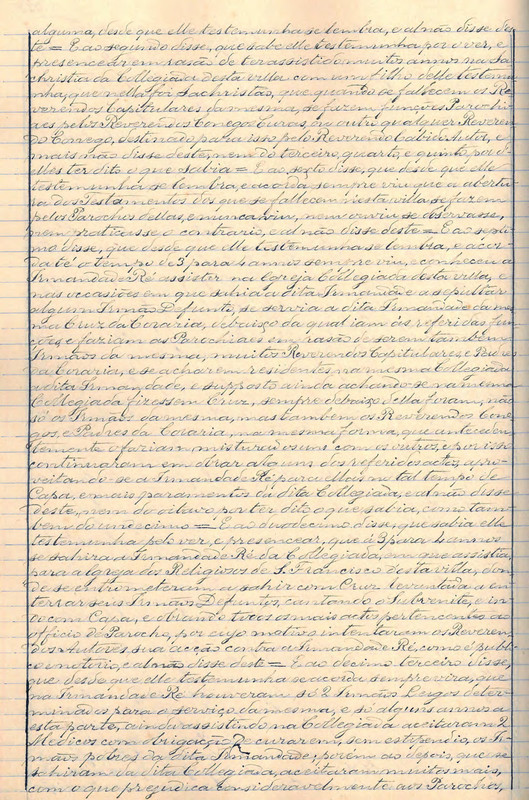 alguma, desde que elle testemunha se lembra, e al não disse des-
te = E ao segundo disse, que sabe elle testemunha por o ver, e
presencear em rasão de ter assistido muitos annos na Sa-
christia da Collegiada desta villa com um filho delle testemu-
nha, que nella foi Sachristão, que quando se fallecem os Re-
verendos Capitulares da mesma, se fazem funções Parochi-
aes pelos Reverendos Conegos Curas, ou outro qualquer Reveren-
do Conego, destinado para isso pelo Reverendo Cabido Autor, e
mais não disse deste, nem do terceiro, quarto, e quinto, por d'el-
les ter dito o que sabia = E ao sexto disse, que desde que elle
testemunha se lembra, e acorda sempre viu que a abertu-
ra dos Testamentos dos que se fallecem nesta villa se fazem
pelos Parochos dellas, e nunca viu, nem ouviu se observasse,
nem praticasse o contrario, e al não disse deste = E ao septi-
mo disse, que desde que elle testemunha se lembra, e acor-
da té o tempo de 3 para 4 annos sempre viu, e conheceu a
Irmandade Ré assister na Egreja Collegiada desta villa, e
nas occasiões em que sahia a dita Irmandade a sepultar
algum Irmão Defunto, se servia a dita Irmandade da mes-
ma Cruz da Coraria, debaixo da qual iam os referidas fun-
ções e faziam as Parochiaes em rasão de serem tambem
Irmãos da mesma, muitos Reverendos Capitulares, e Padres
da Coraria, e se acharem residentes na mesma Collegiada
a dita Irmandade, e supposto ainda achando-se na mesma
Collegiada fizessem Cruz, sempre debaixo della foram, não
só os Irmãos da mesma, mas tambem os Reverendos Cone-
gos, e Padres da Coraria, na mesma forma, que anteceden-
temente o faziam, misturados uns com os outros, e por isso
continuaram em obrar alguns dos referidos actos, apro-
veitando-se a Irmandade Ré para elles no tal tempo de
Capa, e mais paramentos da dita Collegiada, e al não disse
deste, nem do oitavo por ter dito o que sabia, como tam-
bem do undecimo = E ao duodecimo disse, que sabia elle
testemunha pelo ver, e presencear, que á 3 para 4 annos
se sahira a Irmandade Ré da Collegiada, em que assistia,
para a Igreja dos Religiosos de S. Francisco desta villa, don-
de se entrometeram a sahir com Cruz levantada a en-
terrar seus Irmãos Defuntos, cantando o Subvenite, e in-
do com Capa, e obrando todos os mais actos pertencentes ao
officio de Parocho, por cujo motivo intentaram os Reveren-
dos Autores sua acção contra a Irmandade Ré, como é publi-
co e notorio, e al não disse deste = E ao decimo terceiro disse,
que desde que elle testemunha se acorda sempre vira, que
na Irmandade Ré houveram só 2 Irmãos Leigos deter-
minados para o serviço da mesma, e só alguns annos a
esta parte, ainda assistindo na Collegiada aceitaram 2
Medicos com obrigação de curarem, sem estipendio, os Ir-
mãos pobres da dita Irmandade, porém ao depois, que se
se sahiram da dita Collegiada, aceitaram muitos mais,
com o que prejudica consideravelmente aos Parochos,